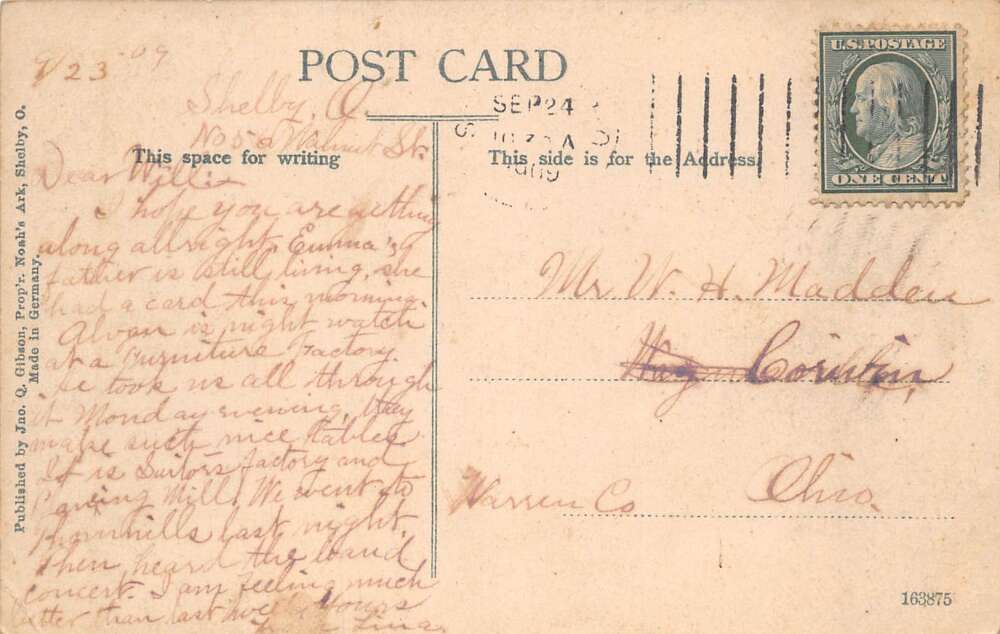 9/23-09
POST CARD
Shelby, O.
No 50 Walnut St.
This space for writing
Dear Willie
I hope you are getting
along allright, Emma's
father is still living, she
had a card this morning.
Alvan is night watch
at a Furniture Factory.
he took us all through
it Monday evening, they
make such nice tables
It is Suitor's factory and
Planing Mill. We went to
Thornhills last night,
then heard the band
concert. I am feeling much
better than last week. Yours
Lina.
SEP 24
A
1909
U.S. POSTAGE
ONE CENT
This side is for the Address.
Mr W. H. Madden
Corwin,
Warren Co Ohio.
Published by Jno. Q. Gibson, Prop'r. Noah's Ark, Shelby, O.
Made in Germany.
163875